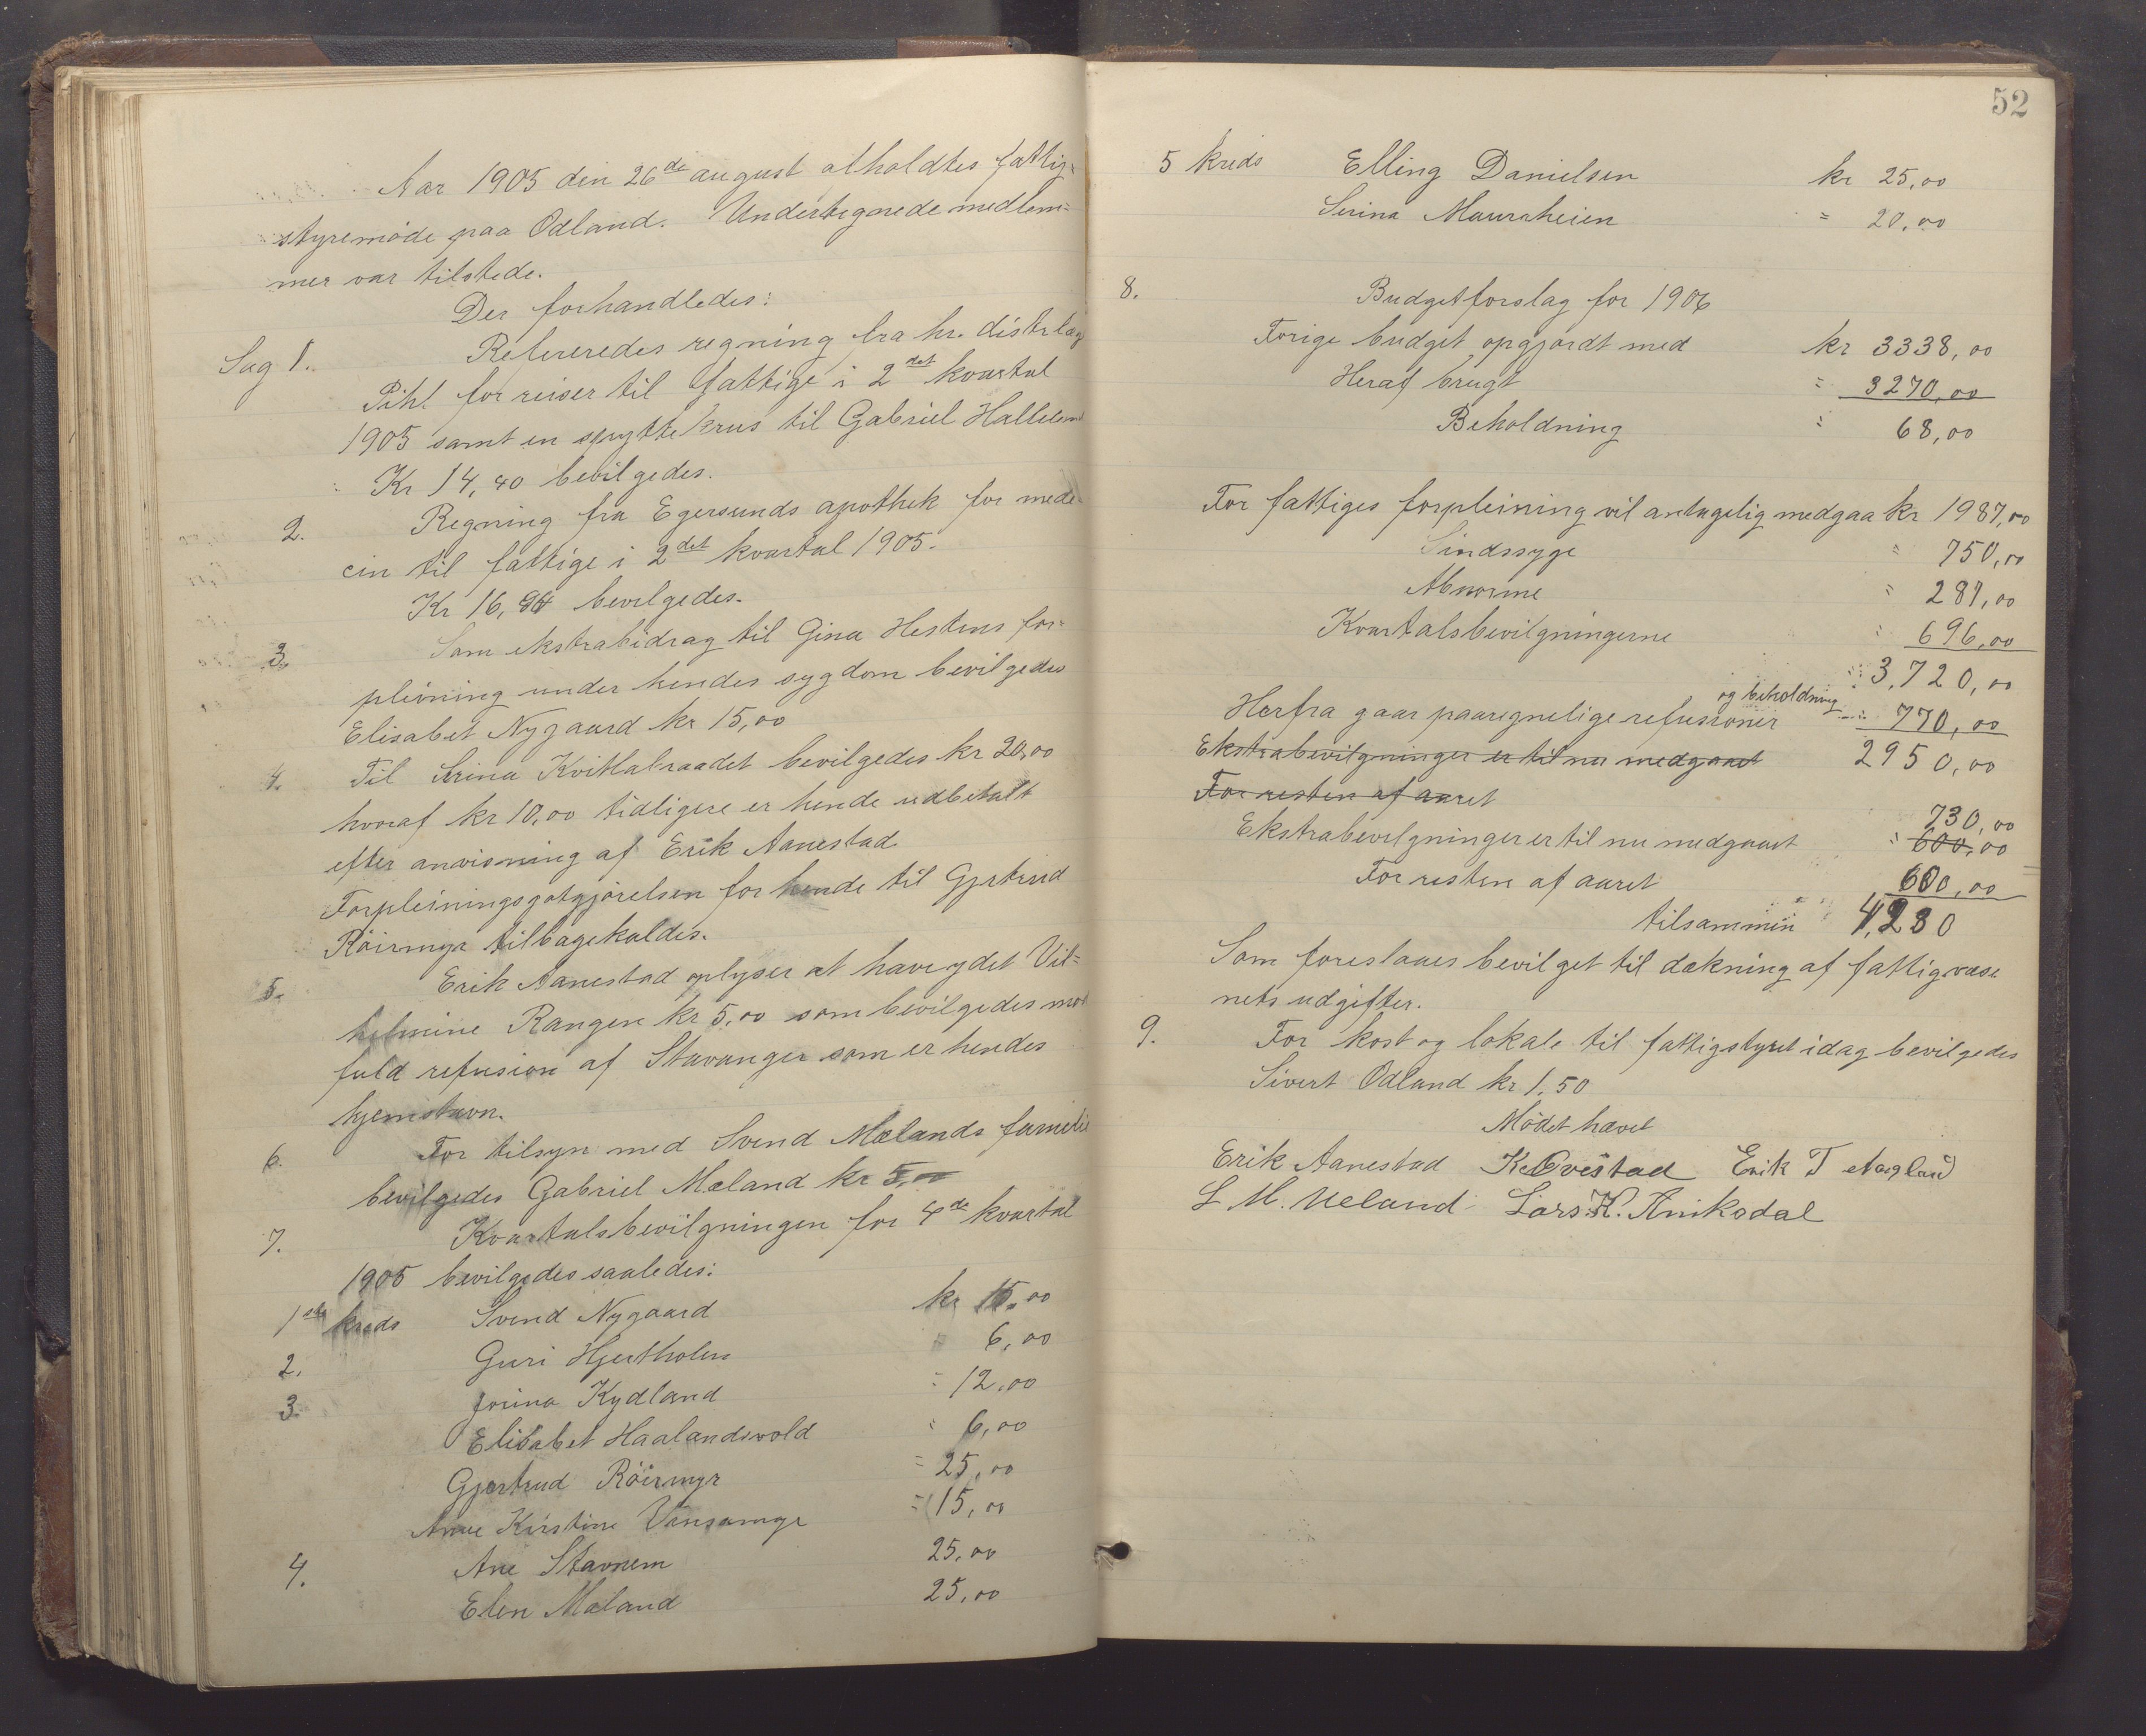 Aar 1905 den 26de august afholdtes fattig=
styremøde paa Odland. Undertegnede medlem=
mer var tilstede.
Der forhandledes:
Sag 1. Refereredes regning fra hr. distrlæg
Pihl for reiser til fattige i 2det kvartal
1905 samt en spyttekrus til Gabriel Hallelend
Kr 14,40 bevilgedes.
2. Regning fra Egersunds apothek for mede=
cin til fattige i 2det kvartal 1905.
Kr 16, bevilgedes.
3. Som ekstrabidrag til Gina Hestens for=
pleining under hendes sygdom bevilgedes
Elisabet Nygaard kr 15,00
4. Til Serina Kvitlabraadet bevilgedes kr 20,00
hvoraf kr 10,00 tidligere er hende udbetalt
efter anvisning af Erik Aanestad
Forpleiningsgotgjørelsen for hende til Gjertrud
Röirmyr tilbagekaldes.
5. Erik Aanestad oplyser at have ydet Vil=
helmine Rangen kr 5,00 som bevilgedes mot
fuld refusion af Stavanger som er hendes
hjemstavn.
6. For tilsyn med Svend Mælands familie
bevilgedes Gabriel Mæland kr 5,00
7. Kvartalsbevilgningen for 4de kvartal
1905 bevilgedes saaledes:
1ste kreds Svend Nygaard kr 15,00
2. Guri Hjertholen 6,00
3. Jorina Kydland = 12,00
Elisabet Haalandsvold = 6,00
Gjertrud Röirmyr = 25,00
Anne Kirstine Vånsamyr = 15,00
4. Ane Stavnem 25,00
Elen Mæland 25,00
52
5 kreds Elling Danielsen kr 25,00
Serina Mauraheien = 20,00
8. Budgetforslag for 1906
Forige budget opgjørdt med kr 3338,00
Heraf brugt = 3270,00
Beholdning = 68,00
For fattiges forpleining vil antagelig medgaa kr 1987,00
Sindssyge = 750,00
Abnorme = 287,00
Kvartalsbevilgningerne = 696,00
3,720,00
og beholdning
Herfra gaar paaregnelige refusioner = 770,00
Ekstrabevilgninger er til nu medgaaet 2950,00
For resten af aaret
730,00
Ekstrabevilgninger er til nu medgaaet = 600,00
For resten af aaret 600,00
tilsammen 4,280
Som foreslaaes bevilget til dækning af fattigvæse
nets udgifter.
9. For kost og lokale til fattigstyret idag bevilgedes
Sivert Odland kr 1,50
Mødet hævet
Erik Aanestad K. Ovestad Erik T Høgland
L M. Ueland Lars. K. Aniksdal